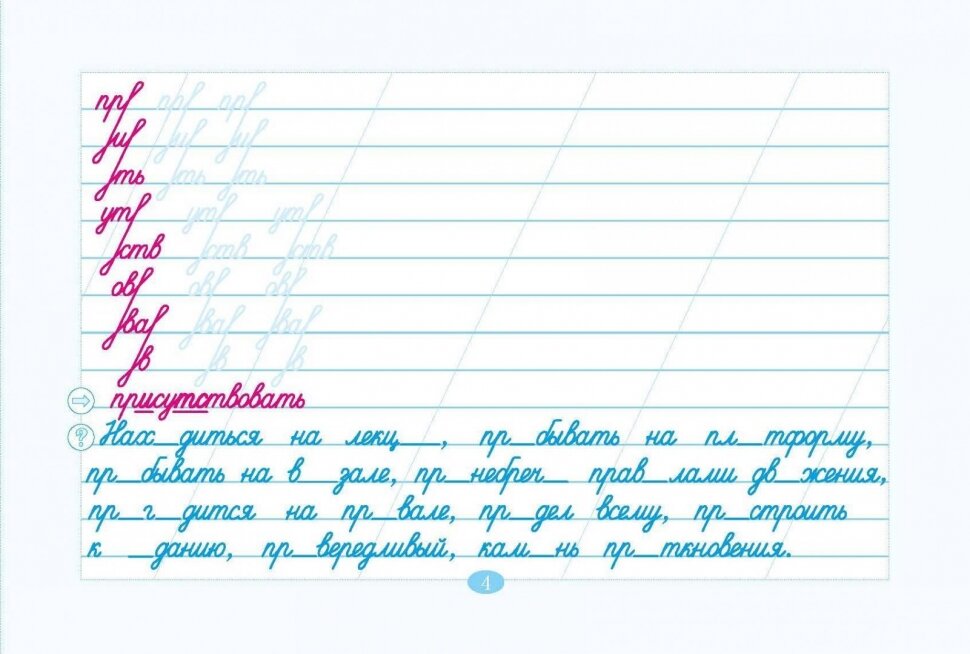 пр пр пр
и и и
ть ть ть
ут ут ут
ств ств ств
ов ов ов
ва ва ва
в в в
присутствовать
? Нах_диться на лекц__, пр_бывать на пл_тформу,
пр_бывать на в_зале, пр_небреч_ прав_лами дв_жения,
пр_г_дится на пр_вале, пр_дел всему, пр_строить
к _данию, пр_вередливый, кам_нь пр_ткновения.
4